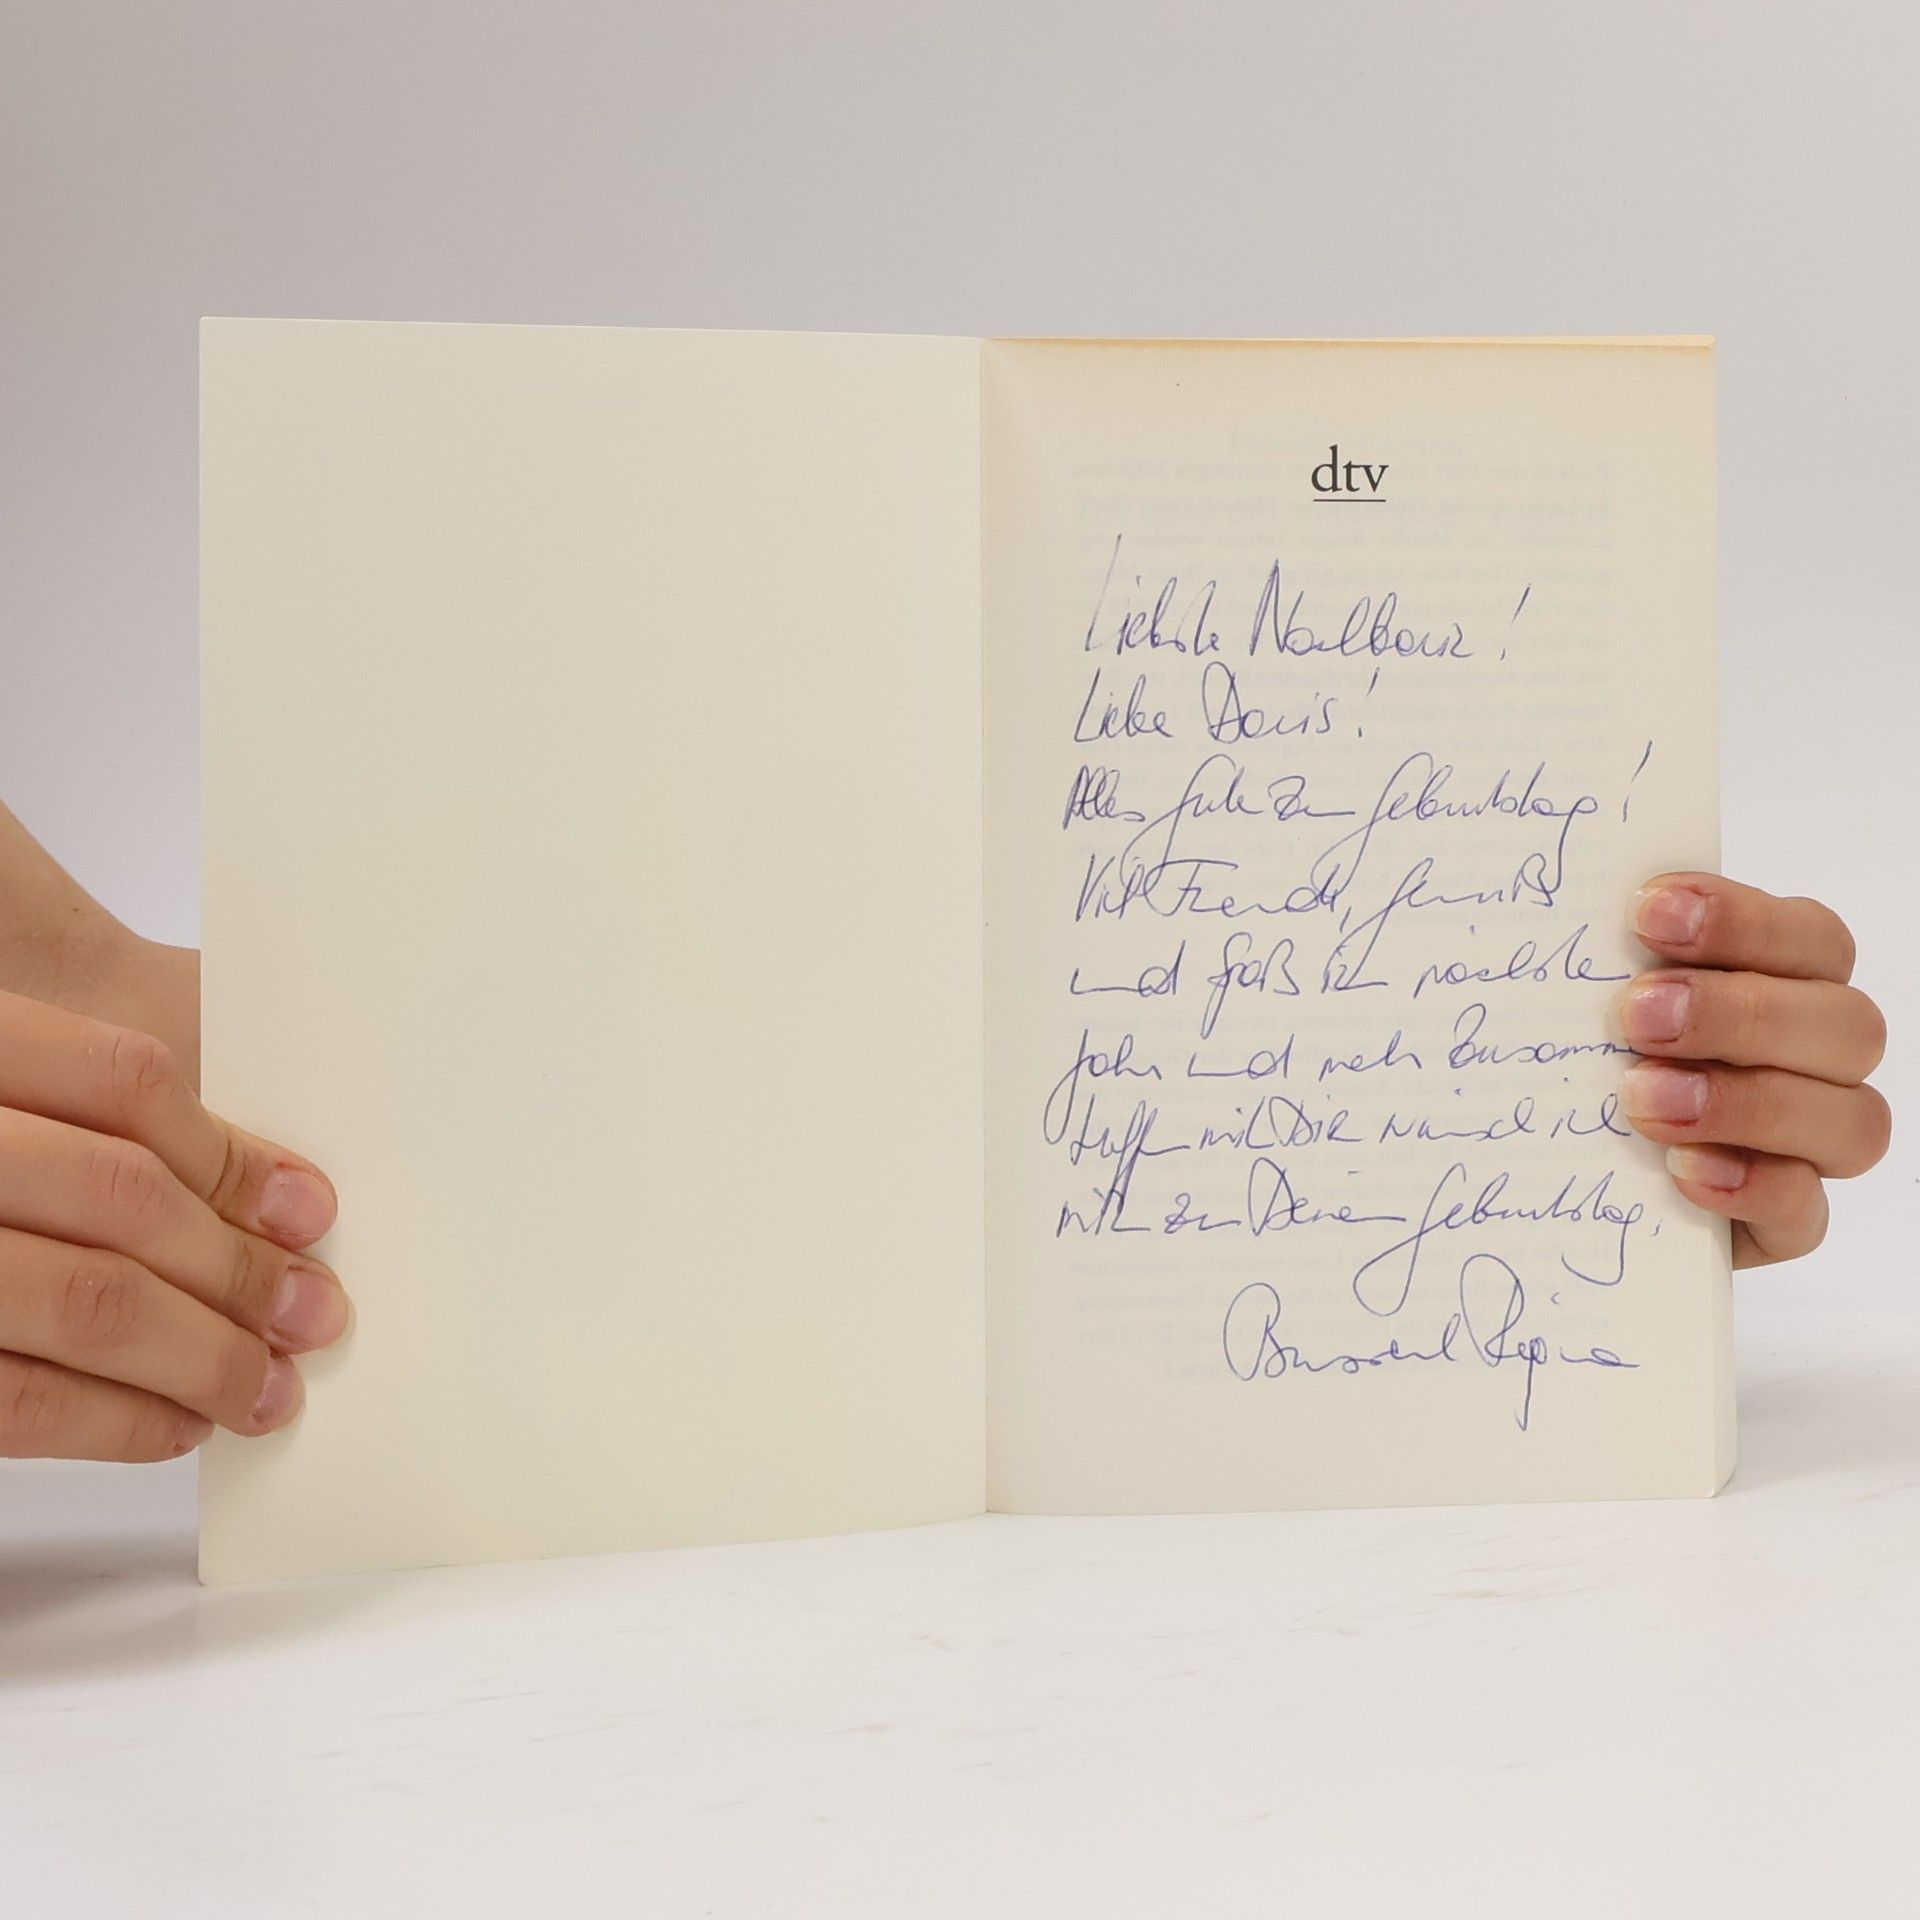 dtv
Liebste Nachbarin!
Liebe Doris!
Alles Gute zum Geburtstag!
Viel Freude, Genuß
und Spaß im nächsten
Jahr und mehr Zusammen
treffen mit Dir wünsch ich
mir zu Deinem Geburtstag.
Busserl Regina